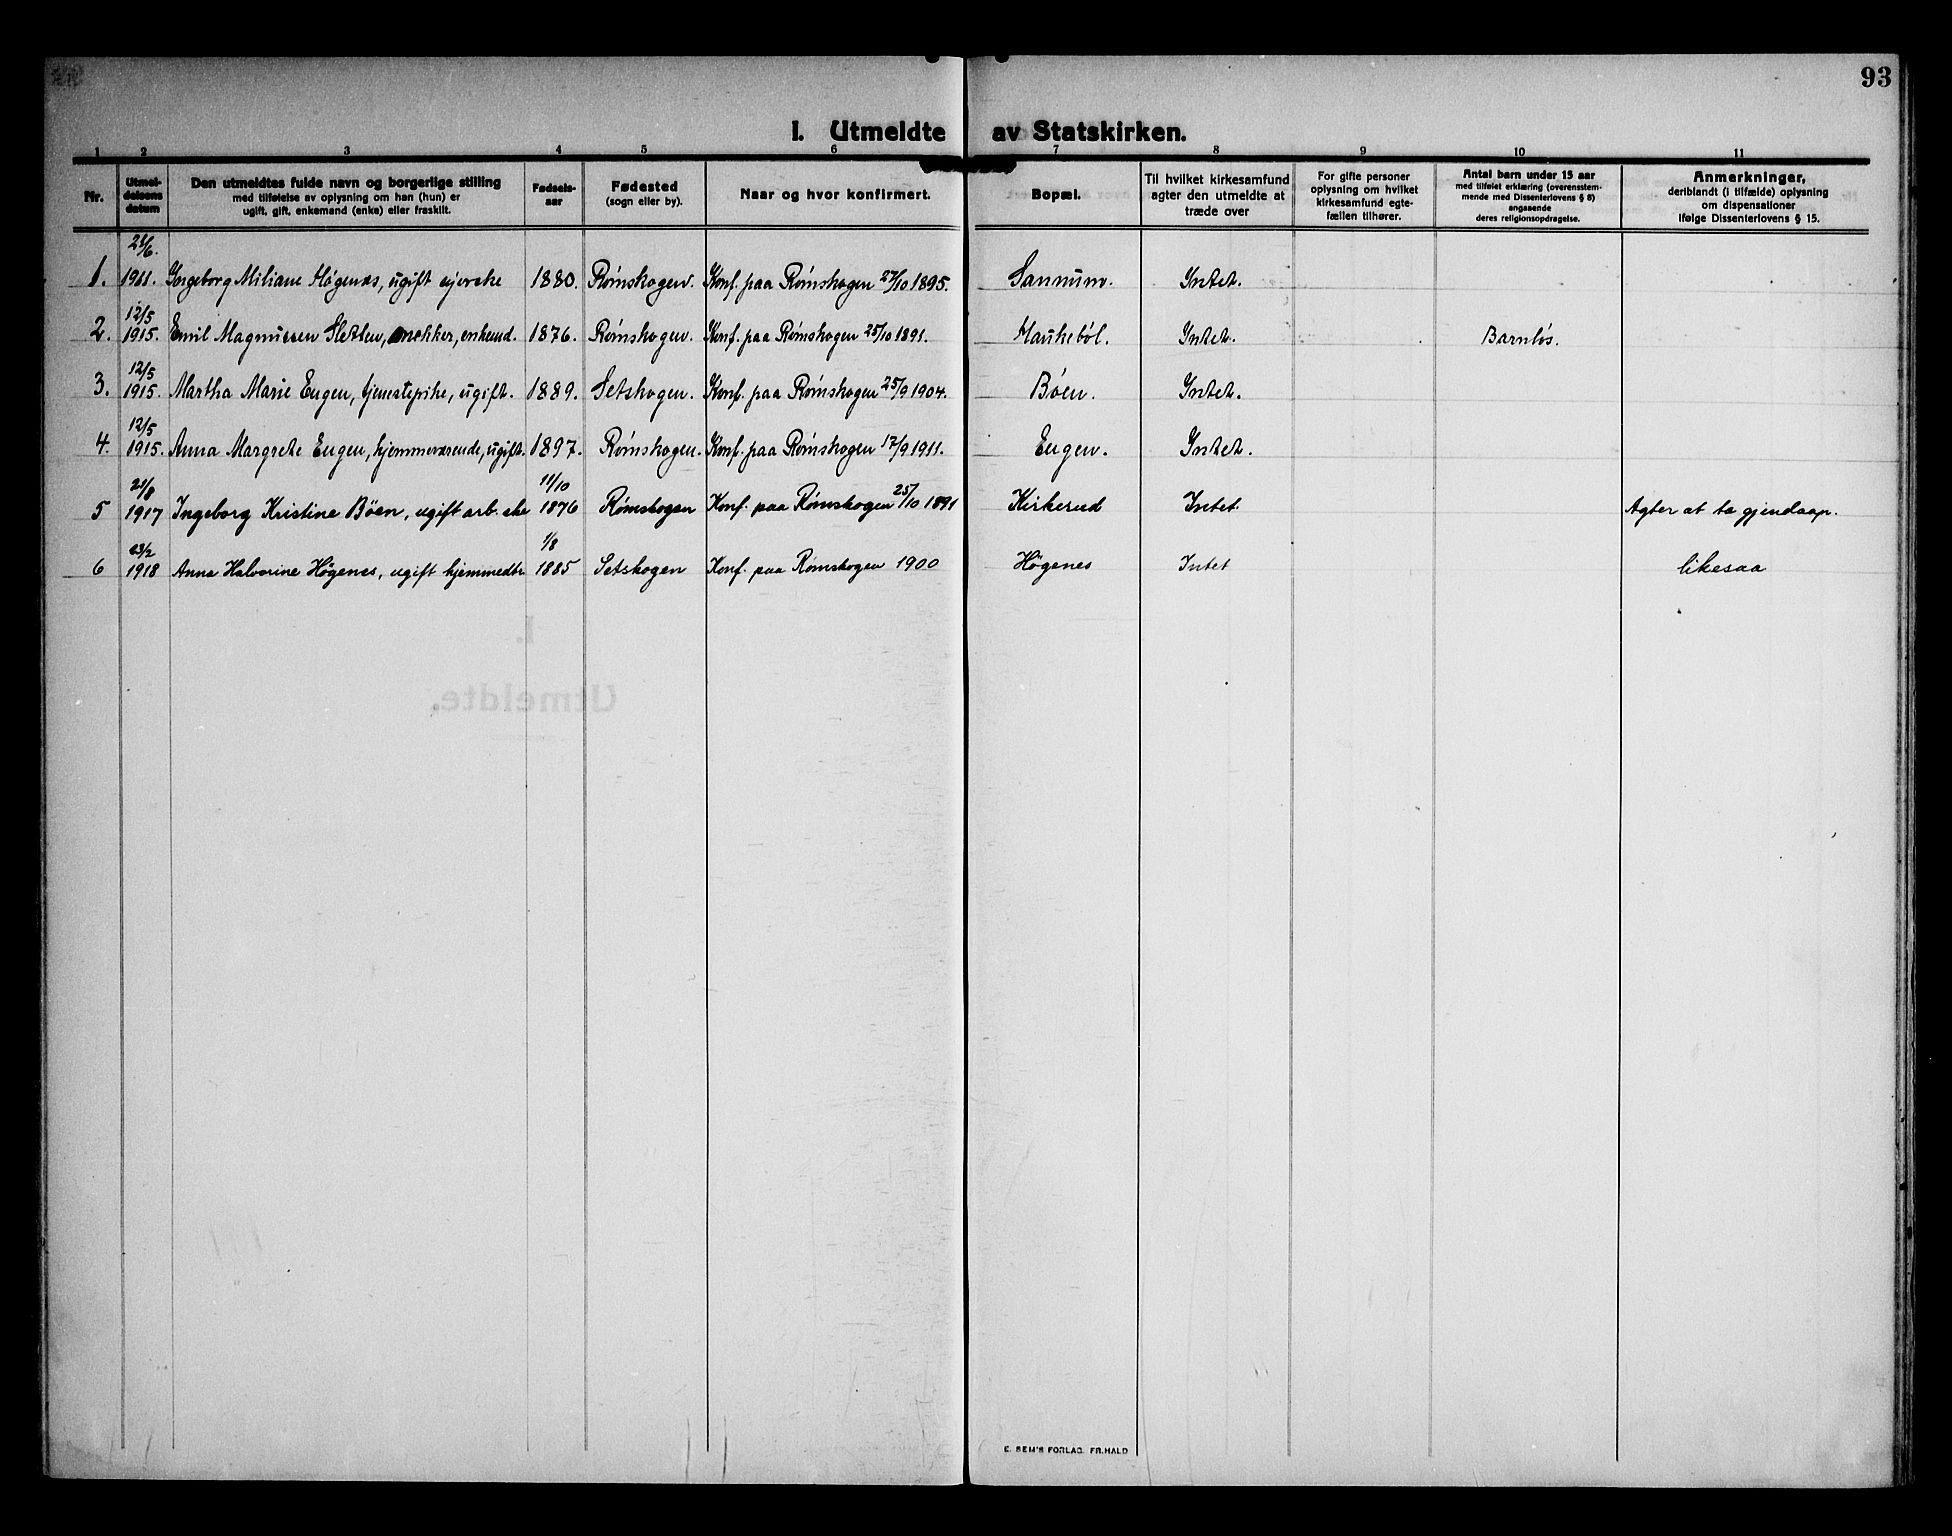 93
I. Utmeldte av Statskirken.
1 2 3 4 5 6 7 8 9 10 11
Nr.
Utmel-
delsens
datum
Den utmeldtes fulde navn og borgerlige stilling
med tilføielse av oplysning om han (hun) er
ugift, gift, enkemand (enke) eller fraskilt.
Fødsels-
aar
Fødested
(sogn eller by).
Naar og hvor konfirmert.
Bopæl.
Til hvilket kirkesamfund
agter den utmeldte at
træde over
For gifte personer
oplysning om hvilket
kirkesamfund egte-
fællen tilhører.
Antal barn under 15 aar
med tilføiet erklæring (overensstem-
mende med Dissenterlovens § 8)
angaaende
deres religionsopdragelse.
Anmerkninger,
deriblandt (i tilfælde) oplysning
om dispensationer
ifølge Dissenterlovens § 15.
1. 1911. Ingeborg Miliane Høgenæs, ugift eierske 1880. Rømskogen. Konf. paa Rømskogen 27/10 1895. Sannum. Intet.
12/5
2. 1915. Emil Magnussen Sletten, snekker, enkemd. 1876. Rømskogen. Konf. paa Rømskogen 25/10 1891. Haukebøl. Intet. Barnløs.
12/5
3. 1915. Martha Marie Engen, tjenestepike, ugift. 1889. Setskogen. Konf. paa Rømskogen 25/9 1904. Bøen. Intet.
12/5
4. 1915. Anna Margrete Engen, hjemmeværende, ugift. 1897. Rømskogen. Konf. paa Rømskogen 17/9 1911. Engen. Intet.
21/8 11/10
5 1917 Ingeborg Kristine Böen, ugift arb. ske 1876 Rømskogen Konf. paa Rømskogen 25/10 1891 Kirkerud Intet. Agter at ta gjendaap.
23/2 1/8
6 1918 Anna Halvorine Högenes, ugift hjemmedtr. 1885 Setskogen Konf. paa Rømskogen 1900 Högenes Intet likesaa
I.
Utmeldte.
E. SEM'S FORLAG. FR.HALD